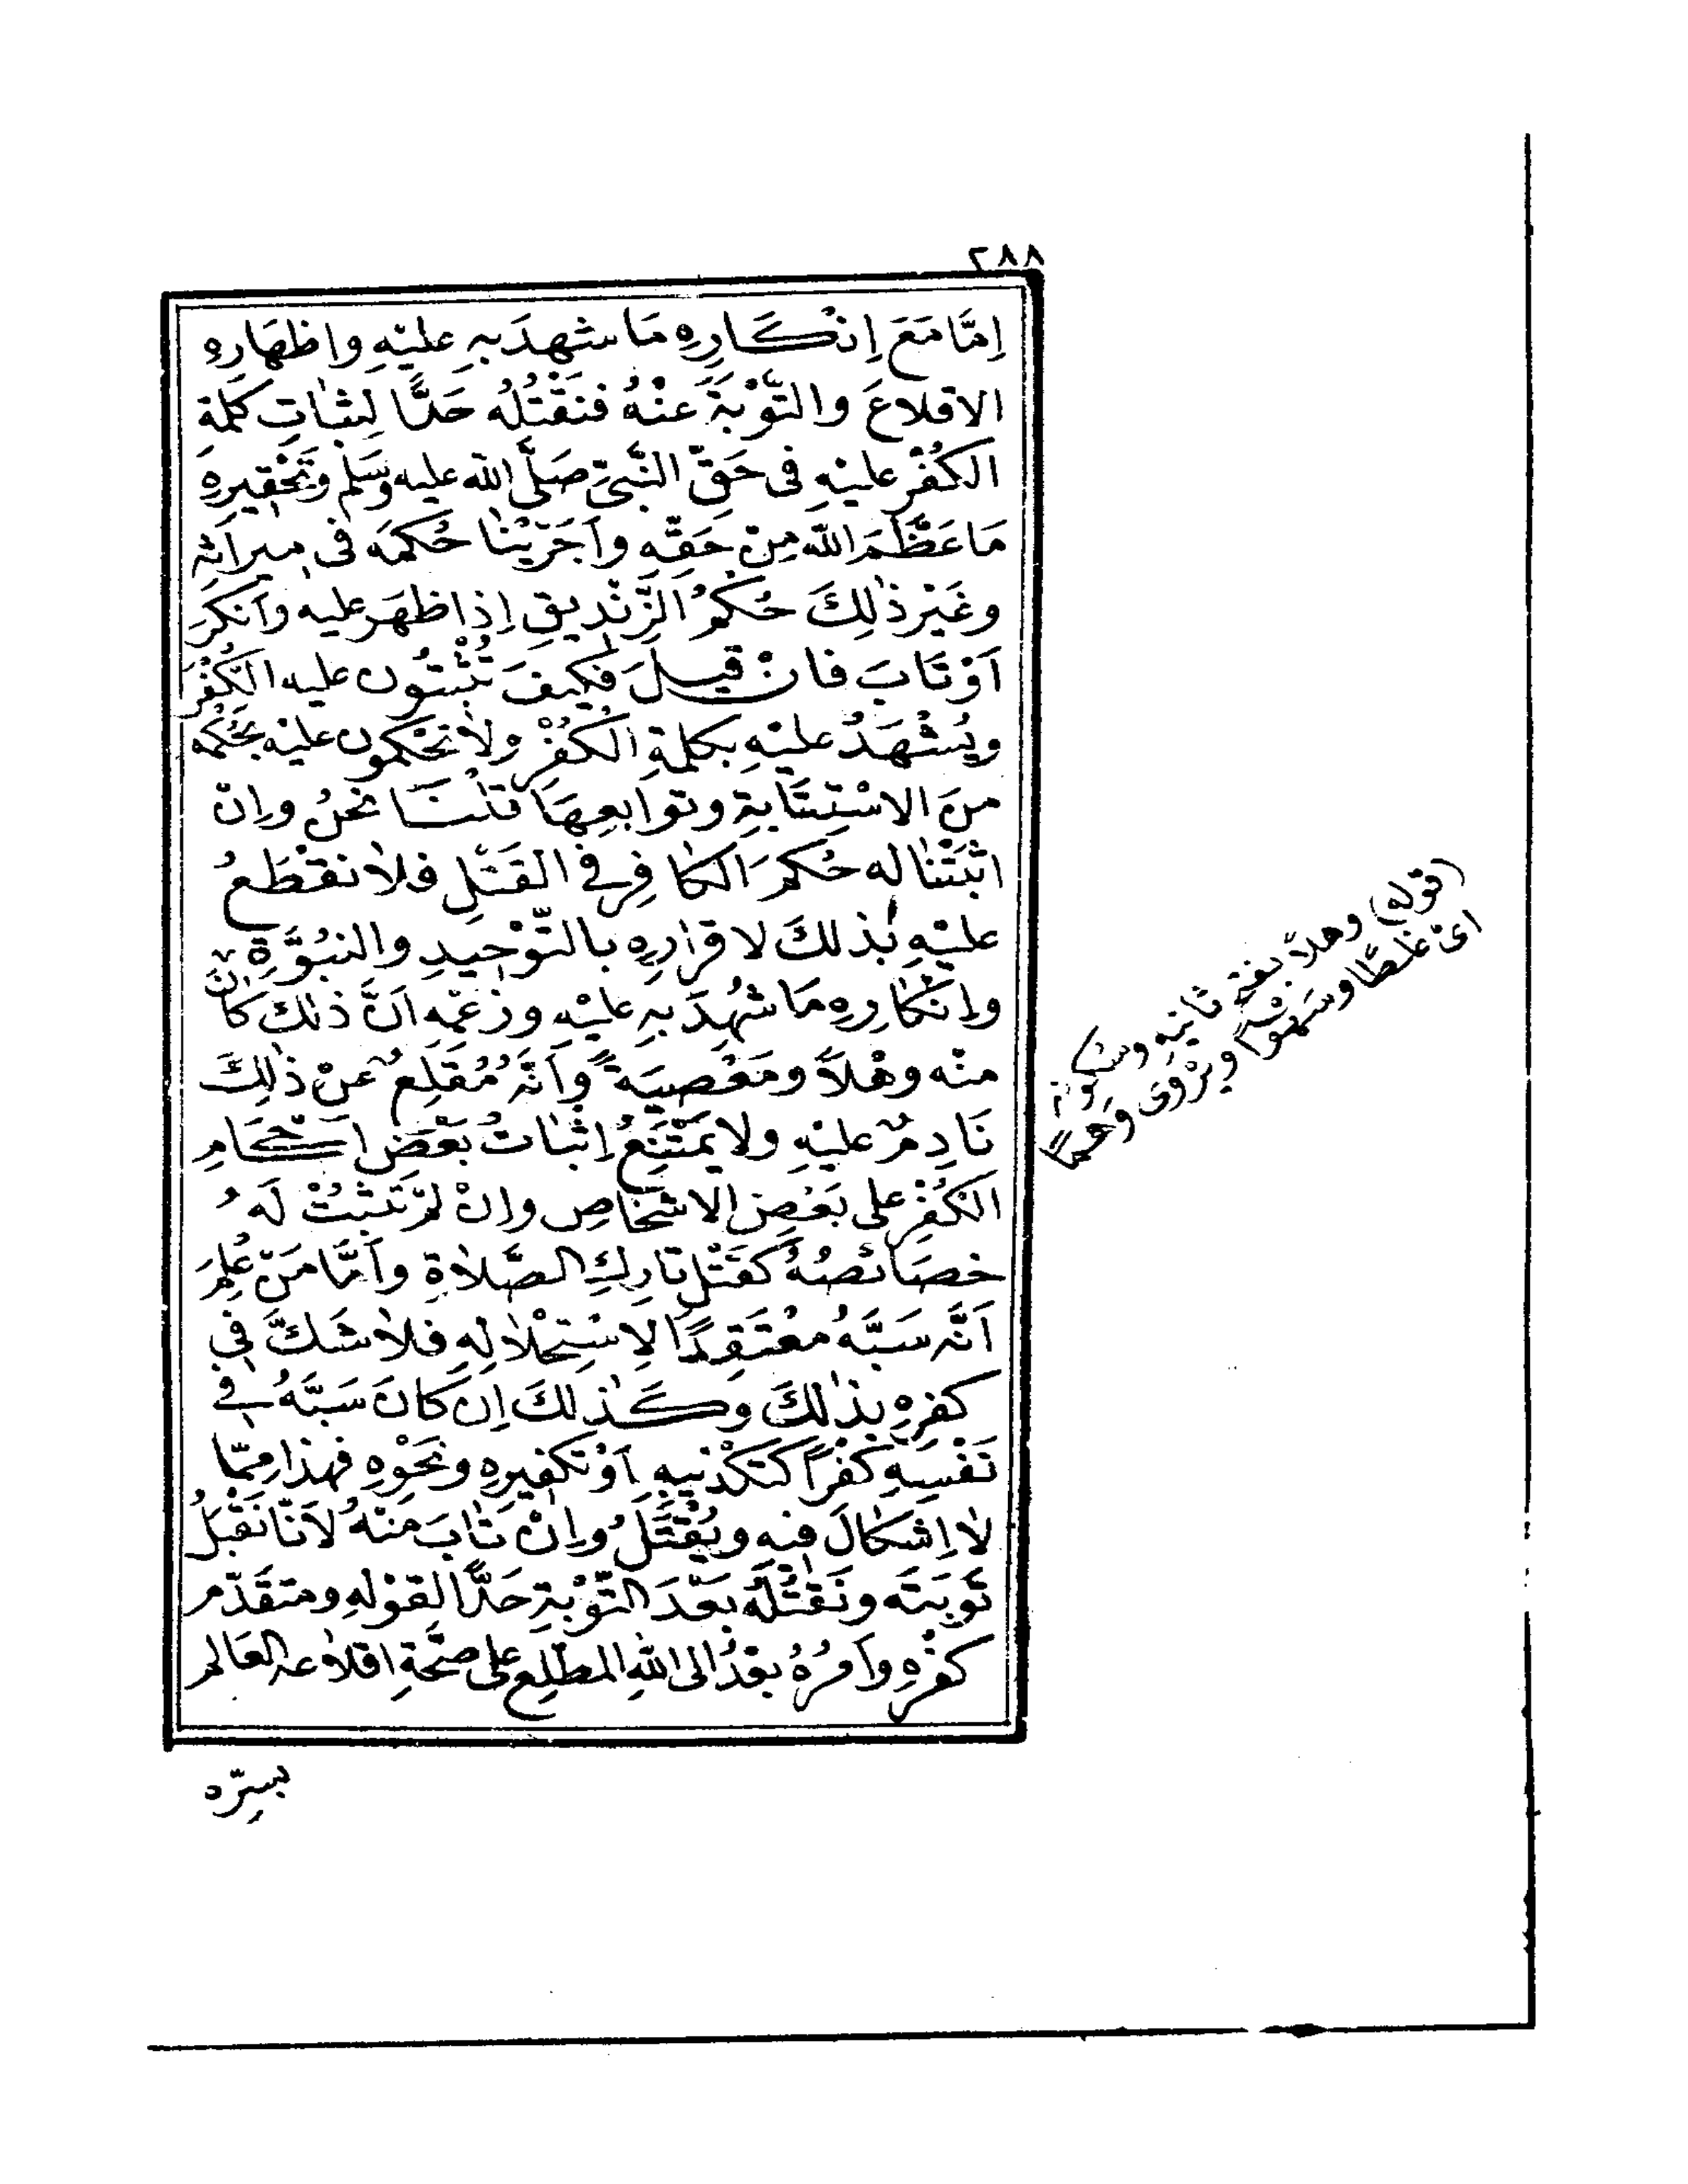 ٢٨٨
اِمَّا مَعَ اِنْكَارِهِ مَا شهِدَ بِهِ عليْهِ واظهَارِهِ
الاقلاعَ والتَّوْبَةَ عَنْهُ فنَقْتُلُه حَدًّا لِثبَاتِ كَلمَةِ
الكُفْرِ عليْهِ فى حَقِّ النَّبىِّ صَلَّى اللّٰه عليه وسَلم وَتَحْقيرِهِ
مَا عَظَّمَ اللّٰه مِنْ حَقّهِ واَجَرَيْنَا حُكمَه فى ميراَثِه
وغَيْرِ ذٰلِكَ حُكمُ الزِّنْديقِ اِذا ظهَرَ عليه واَنكرَ
اَوْ تَابَ فان قيلَ فكيفَ تُثْبِتُون عليه الكُفْرَ
ويُشْهَدُ عليْهِ بكلمةِ الكُفْرِ ولا تحْكمون عليْهِ بحُكْمِه
منَ الاسْتتَابةِ وتوابعِهَا قلْنَا نحْنُ وإنْ
اثْبَتْنَا له حُكمَ الكافِرِ فى القَتْلِ فلا نقْطَعُ
عليْهِ بذلكَ لاقرارِهِ بالتّوْحِيدِ والنبُوَّةِ
واِنْكَارِهِ مَا شُهِدَ بِهِ عليْهِ وزعْمِهِ اَنَّ ذٰلكَ كَانَ
منْه وهْلاً ومَعْصيَةً واَنَّهُ مُقلِعٌ عنْ ذٰلِكَ
نَادِمٌ عليْهِ ولا يمْتَنِعُ اثبَاتُ بَعْضِ احْكَامِ
الْكُفْرِ على بَعْضِ الاشْخاصِ وانْ لمْ تَثْبُتْ لَهُ
خصَائصُهُ كقَتْلِ تارِكِ الصَّلاةِ واَمَّا مَنْ عُلِمَ
اَنَّه سَبَّهُ معْتَقِدًا لاِسْتِحْلالِهِ فلا شَكَّ فى
كفرِهِ بِذٰلكَ وكَذٰلكَ اِن كانَ سَبَّهُ فى
نَفْسِهِ كفْرًا كتَكْذيبِهِ اَوْ تكفيرِهِ ونحْوِهِ فهذا مِمّا
لا اِشكالَ فيهِ ويُقْتَلُ وإنْ تَابَ منْهُ لاَنّا نَقْبَلُ
تَوبَتَه ونَقْتُلُه بَعْدَ التّوْبَةِ حَدًّا لقوْلِهِ ومتقَدّم
كفْرِهِ واَمْرُهُ بعْدُ الى اللّٰهِ المطّلِعِ على صحَّةِ اقلاعه العَالم
بسِرّه
(قوله) وهلاً بفتح ثانيه وسكونه
اىْ غلطًا وسَهْوًا ويُرْوى